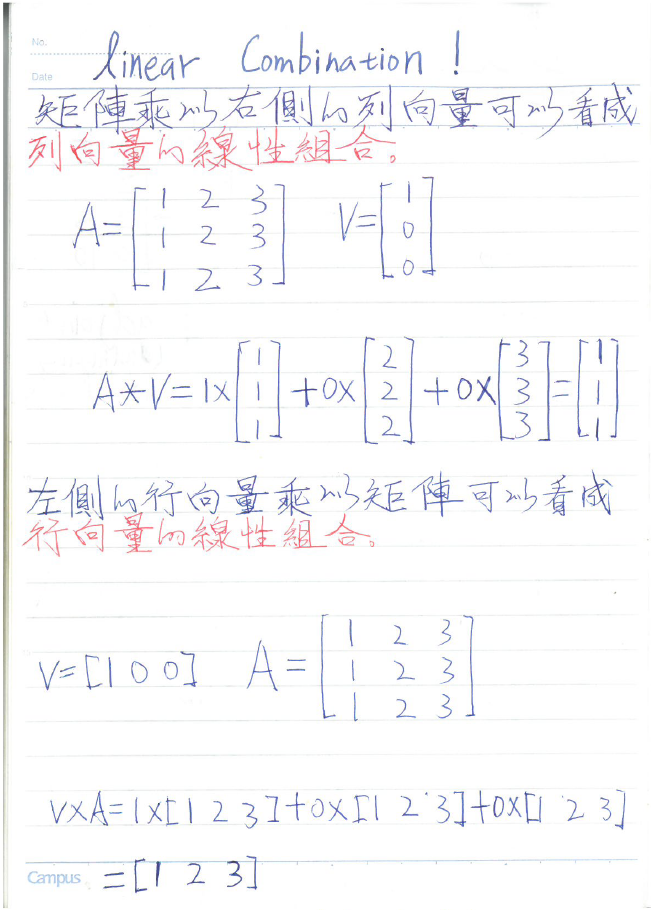 No.
Date
linear Combination !
矩陣乘以右側的列向量可以看成
列向量的線性組合。
A=[1 2 3
1 2 3
1 2 3]
V=[1
0
0]
A*V=1x[1
1
1]+0x[2
2
2]+0x[3
3
3]=[1
1
1]
左側的行向量乘以矩陣可以看成
行向量的線性組合。
V=[1 0 0] A=[1 2 3
1 2 3
1 2 3]
VxA=1x[1 2 3]+0x[1 2 3]+0x[1 2 3]
Campus =[1 2 3]